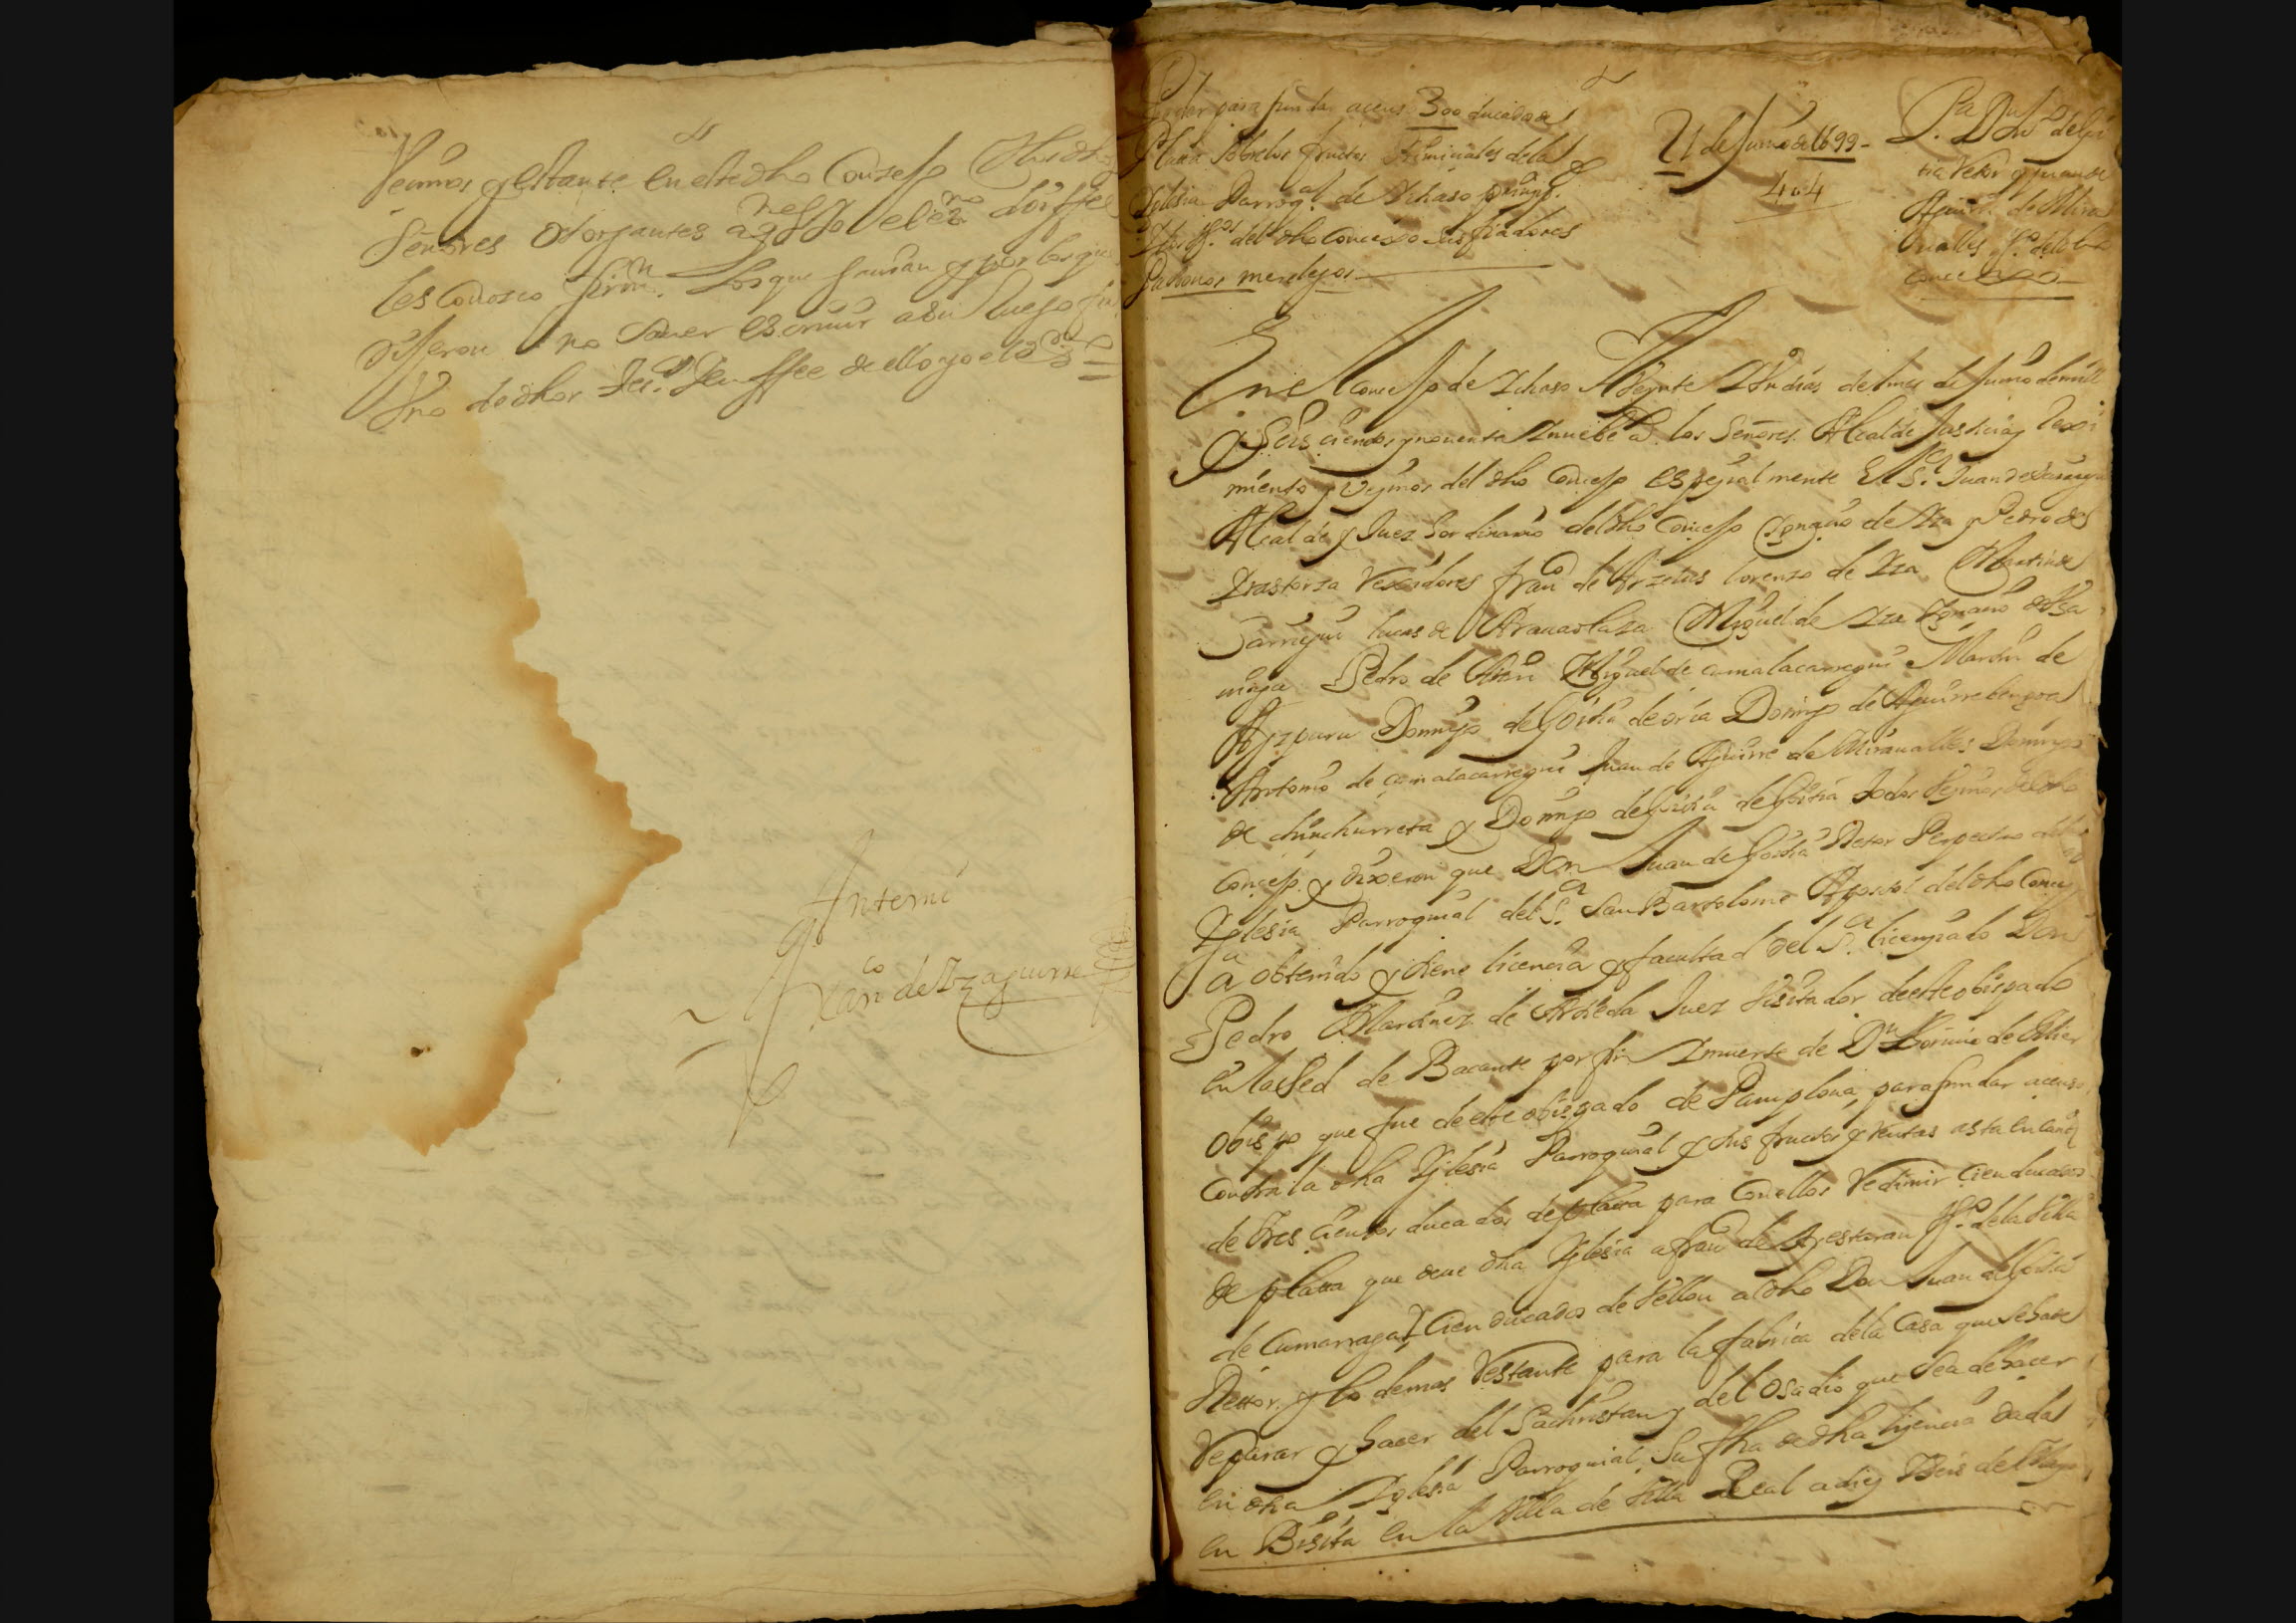 Veçinos y estante en este dho Conçejo
Señores otorgantes a q^nes yo el es^no doi ffee
les Conozco firm^n los que savian y por los que
dijeron no saver escriuir a su ruego fir
uno de dhos t^os en ffee de ello yo el es^no =
Antemi
Fran^co de Yzaguirre
Poder para fundar a censo 300 ducados de
Plata sobre los fructos Primiçiales de la
Yglesia Parroq^l de Ychaso prinçip^l
del dho Conçejo sus fiadores
Patronos merelegos
21 de Junio de 1699 -
404
P^a D^n Ju^o de Goi
tia Retor y Juan de
Aguirre de Mira
nalles v^o del dho
conçejo
En el Conçejo de Ychaso A Veynte Y Un dias del mes de Junio de mill
y Seis çientos y nouenta Y nuebe a^s los Señores Alcalde Justicia y Rexi
miento y Veçinos del dho Conçejo espeçialmente El S^r Juan de
Alcalde y Juez hordinario del dho Conçejo Ygnaçio de Yza y Pedro de
Yrastorza Rexidores fran^co de Arzelus lorenzo de Yza Martin de
Jarregui lucas de Aranaolaza Miguel de Yza Ygnaçio de
Pedro de Miguel de çumalacarregui Martin de
Azpuru Domingo de Goitia de oria Domingo de Aguirrebengoa
Antonio de çumalacarregui Juan de Aguirre de Miranalles Domingo
de chinchurreta y Domingo de Goitia de Goitia todos Veçinos del dho
Conçejo y dixeron que Don Juan de Goitia Retor Perpetuo de la
Yglesia Parroquial del S^r San Bartolome Apostol del dho Conçejo
a obtenido y tiene licencia y facultad del S^r liçençiado Don
Pedro Martinez de Artieda Juez Visitador de este obispado
en la Sed de Bacante por fin Y muerte de D^n Toriuio de Mier
obispo que fue de este obispado de Pamplona, para fundar a censo
Contra la dha Yglesia Parroquial y sus fructos y Rentas asta en cant^d
de tres Çientos ducados de plata para Con ellos Redimir Çien ducados
de plata que deue dha Yglesia a fran^co de Arestaran v^o de la Villa
de Çumarraga, Y Cien ducados de Vellon al dho Don Juan de Goitia
Rettor, y lo demas Restante para la fabrica de la Casa que se ha de
Reparar y hacer del Sachristan y del Osadio que sea de hacer
en dha Yglesia Parroquial, Su fha de dha liçencia dada
en Bisita en la Villa de Villa Real a diez Y Seis de Mayo